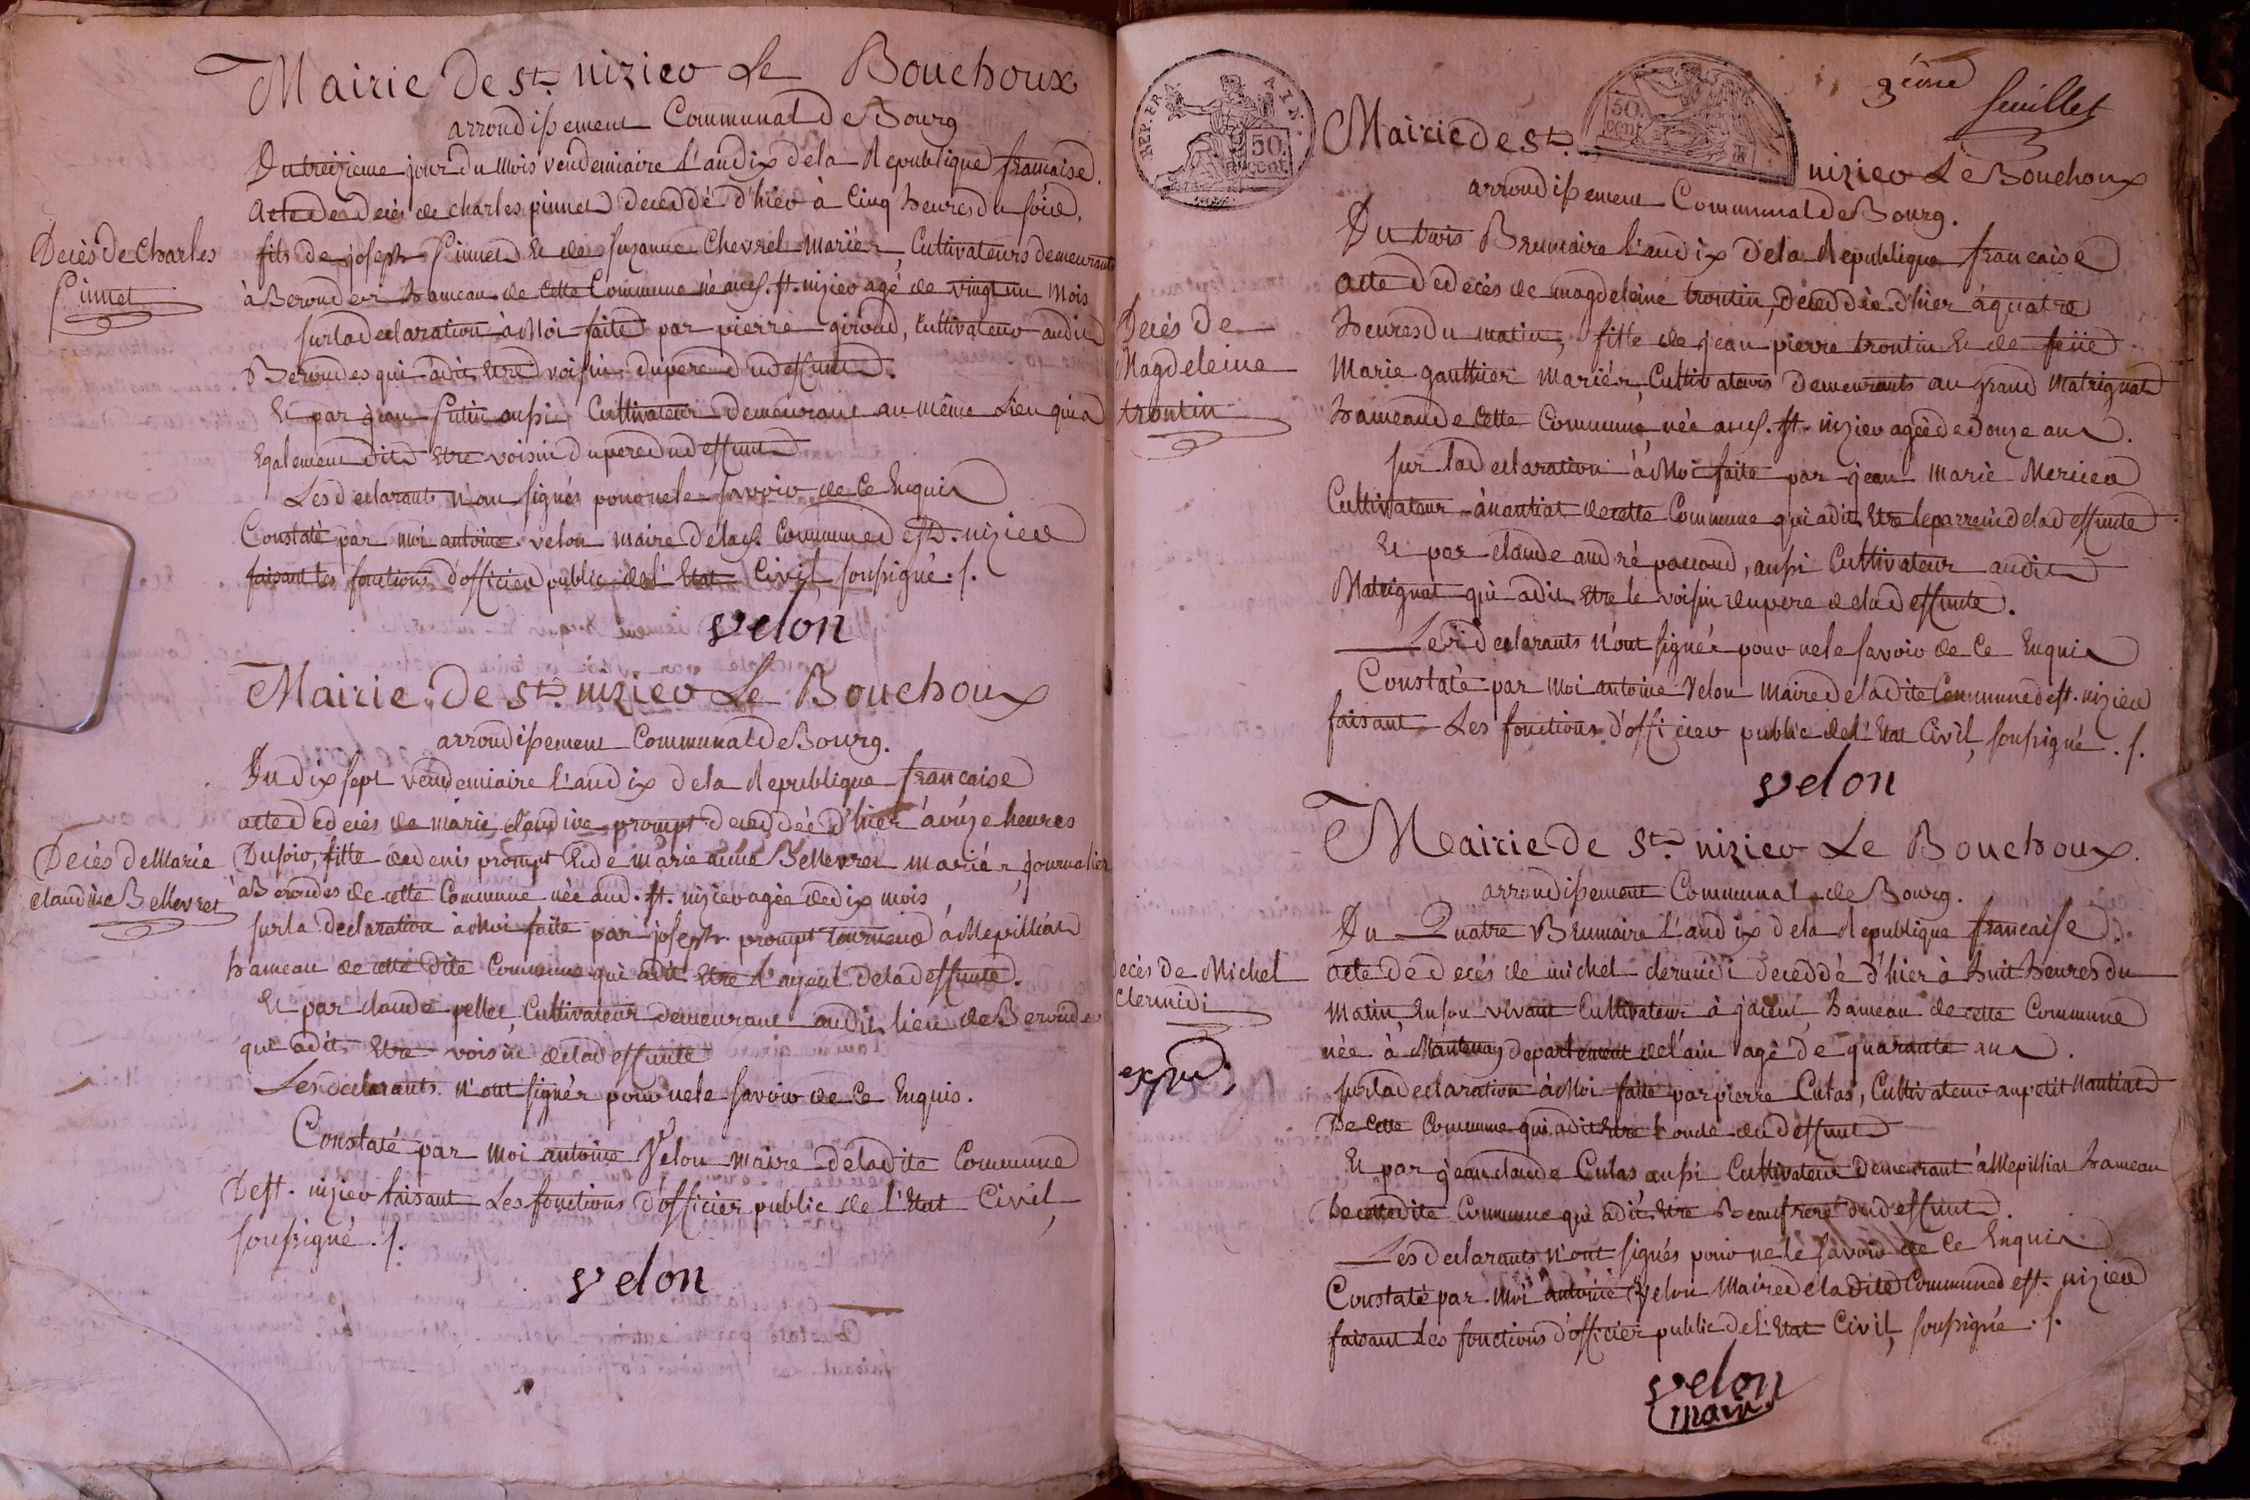 Mairie de St. nizier Le Bouchoux
arrondissement Communal de Bourg
Du treizieme jour du Mois vendemiaire L'an dix de la Republique francaise.
Acte de decès de charles pinnet decedé d'hier à Cinq heures du soir,
Decès de Charles
Pinnet
fils de joseph Pinnet Et de suzanne Chevrel Mariés, Cultivateurs demeurants
à Beroudes hameau de Cette Commune né aud. st. nizier agé de vingt un Mois
sur la declaration à Moi faite par pierre giroud, Cultivateur audit
Beroudes qui a dit Etre voisin du pere du deffunt.
Et par jean Putin aussi Cultivateur demeurant au même Lieu qui a
Egalement dit Etre voisin du pere du deffunt
Les declarants n'on signés pour ne le savoir de Ce Enquis
Constaté par moi antoine velon maire de lad. Commune de St. nizier
faisant les fonctions d'officier public de l'Etat Civil, soussigné. s.
velon
Mairie de St. nizier Le Bouchoux
arrondissement Communal de Bourg.
Du dix sept vendemiaire L'an dix de la Republique francaise
acte de decès de marie claudine prompt decedée d'hier à onze heures
Decès de Marie
claudine Bellevret
Du soir, fille de denis prompt Et de marie anne Bellevret mariés, journalier
à Beroudes de cette Commune née aud. st. nizier agée de dix mois,
sur la declaration à Moi faite par joseph prompt tourneur à Mepilliat
hameau de cette dite Commune qui a dit Etre L'ayeul de la deffunte.
Et par claude pellet, Cultivateur demeurant audit lieu de Beroudes
qui a dit Etre voisin de la deffunte
Les declarants n'ont signés pour ne le savoir de Ce Enquis.
Constaté par moi antoine Velon maire de la dite Commune
De st. nizier faisant Les fonctions d'officier public de l'Etat Civil,
soussigné. s.
velon
REP. FRA.
50.
cent.
AIN.
50.
cent
3ème
feuillet
Mairie de St. nizier Le Bouchoux
arrondissement Communal de Bourg.
Du trois Brumaire L'an dix de la Republique francaise
Acte de decès de magdeleine trontin, decedée d'hier à quatre
Decès de
Magdeleine
trontin
heures du matin, fille de jean pierre trontin Et de feüe
Marie gauthier mariés, Cultivateurs demeurants au grand Matrignat
hameau de Cette Commune, née aud. st. nizier agée de douze ans.
sur la declaration à Moi faite par jean marie Mercier
Cultivateur à nantiat de cette Commune qui a dit Etre le parrein de la deffunte
Et par claude andré, aussi Cultivateur audit
Matrignat qui a dit Etre le voisin du pere de la deffunte.
Les declarants n'ont signés pour ne le savoir de Ce Enquis
Constaté par moi antoine Velon maire de la dite Commune de st. nizier
faisant Les fonctions d'officier public de l'Etat Civil, soussigné. s.
velon
Mairie de St. nizier Le Bouchoux.
arrondissement Communal de Bourg.
Du Quatre Brumaire L'an dix de la Republique francaise.
Acte de decès de michel clermidi decedé d'hier à huit heures du
Decès de Michel
Clermidi
Matin, En son vivant Cultivateur à hameau de cette Commune
née à Mantenay departement de l'ain agé de quarante ans.
sur la declaration à Moi faite par pierre Cutas, Cultivateur au petit Nantiat
De Cette Commune qui a dit Etre L'oncle du deffunt
Et par jean claude Cutas aussi Cultivateur demeurant à Mepilliat hameau
De cette dite Commune qui a dit Etre Beaufrere du deffunt.
Les declarants n'ont signés pour ne le savoir de Ce Enquis
Constaté par Moi antoine Velon Maire de la dite Commune de st. nizier
faisant Les fonctions d'officier public de l'Etat Civil, soussigné. s.
velon
maire